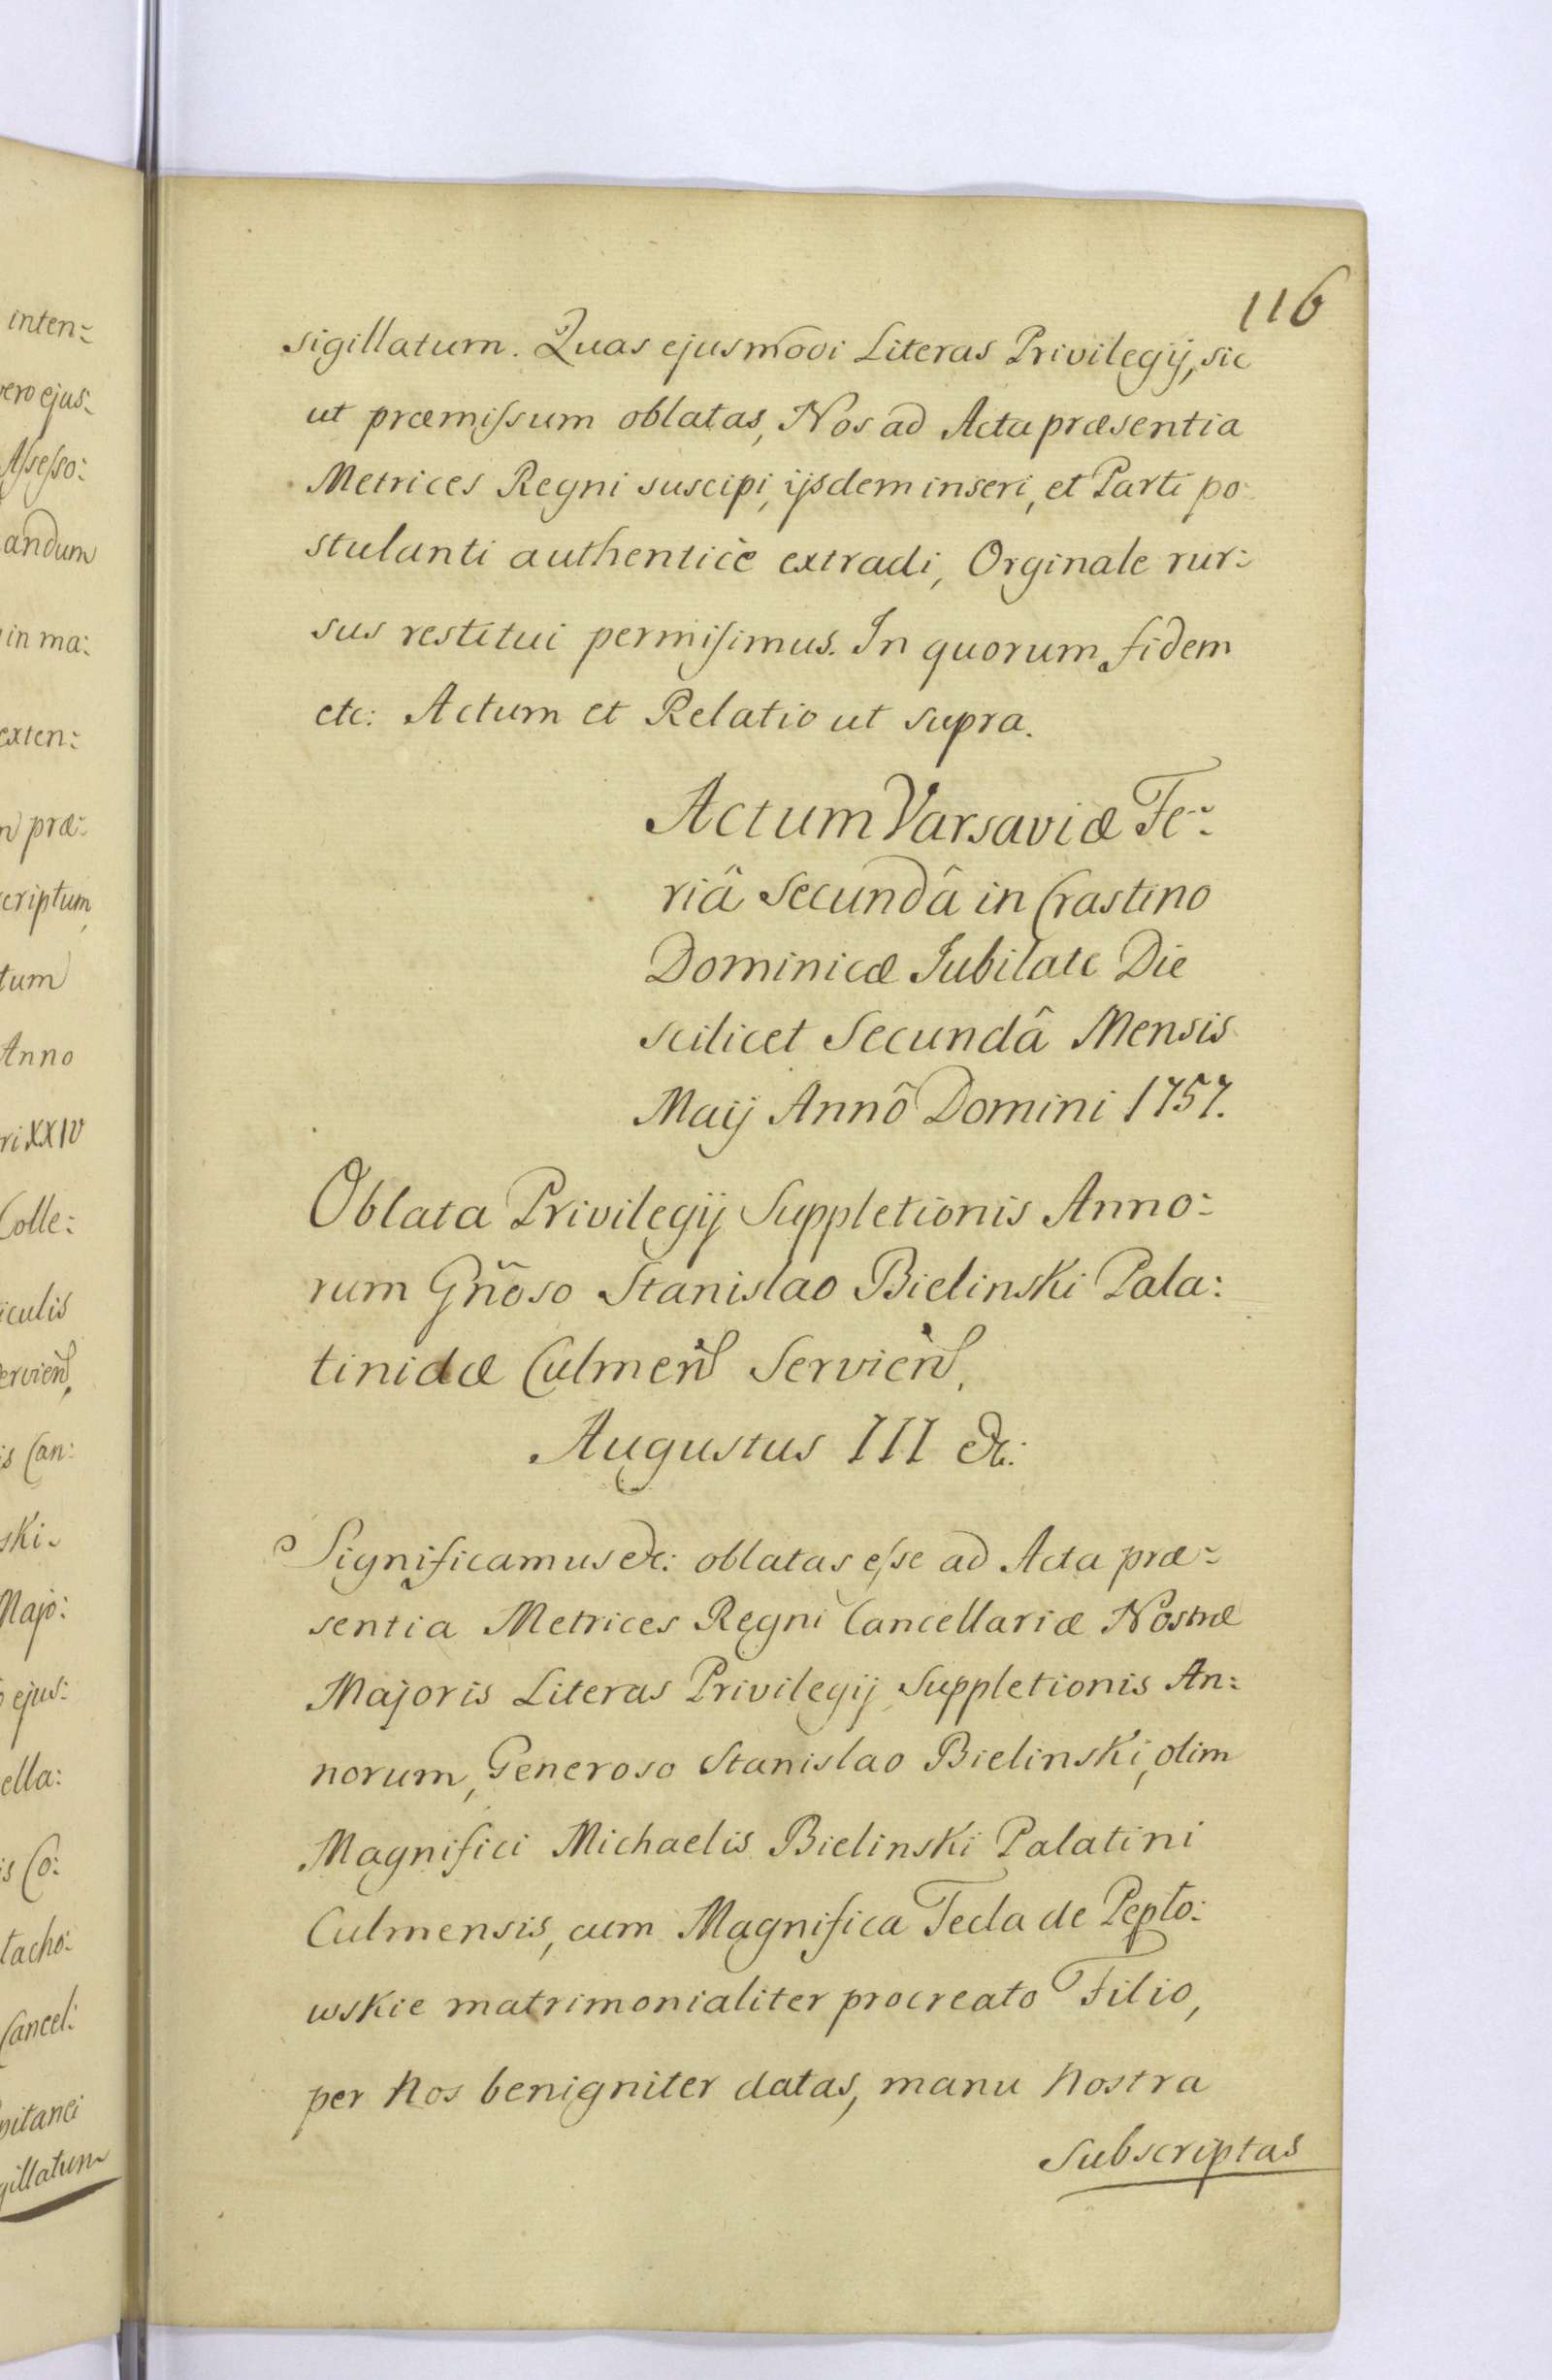 116
sigillatum. Quas ejusmodi Literas Privilegij, sic
ut præmissum oblatas, Nos ad Acta præsentia
Metrices Regni suscipi, ijsdem inseri, et Parti po:
stulanti authenticè extradi, Orginale rur:
sus restitui permisimus. In quorum fidem
etc: Actum et Relatio ut supra.
Actum Varsaviæ Fe:
riâ Secundâ in Crastino
Dominicæ Jubilate Die
scilicet Secundâ Mensis
Maij Annô Domini 1757.
Oblata Privilegij Suppletionis Anno:
rum Gñoso Stanislao Bielinski Pala:
tinidæ Culmens Serviens,
Augustus III &c:
Significamus &c: oblatas esse ad Acta præ:
sentia Metrices Regni Cancellariæ Nostræ
Majoris Literas Privilegij Suppletionis An:
norum, Generoso Stanislao Bielinski, olim
Magnifici Michaelis Bielinski Palatini
Culmensis, cum Magnifica Tecla de Pepło:
wskie matrimonialiter procreato Filio,
per Nos benigniter datas, manu Nostra
Subscriptas
inten:
vero ejus:
Assesso:
andum
in ma:
exten:
præ:
criptum,
tum
Anno
ri XXIV
Colle:
iculis
erviens,
is Can:
ski.
Majo:
ejus:
ella:
is Co:
tacho:
Cancel:
pitanei
gillatum